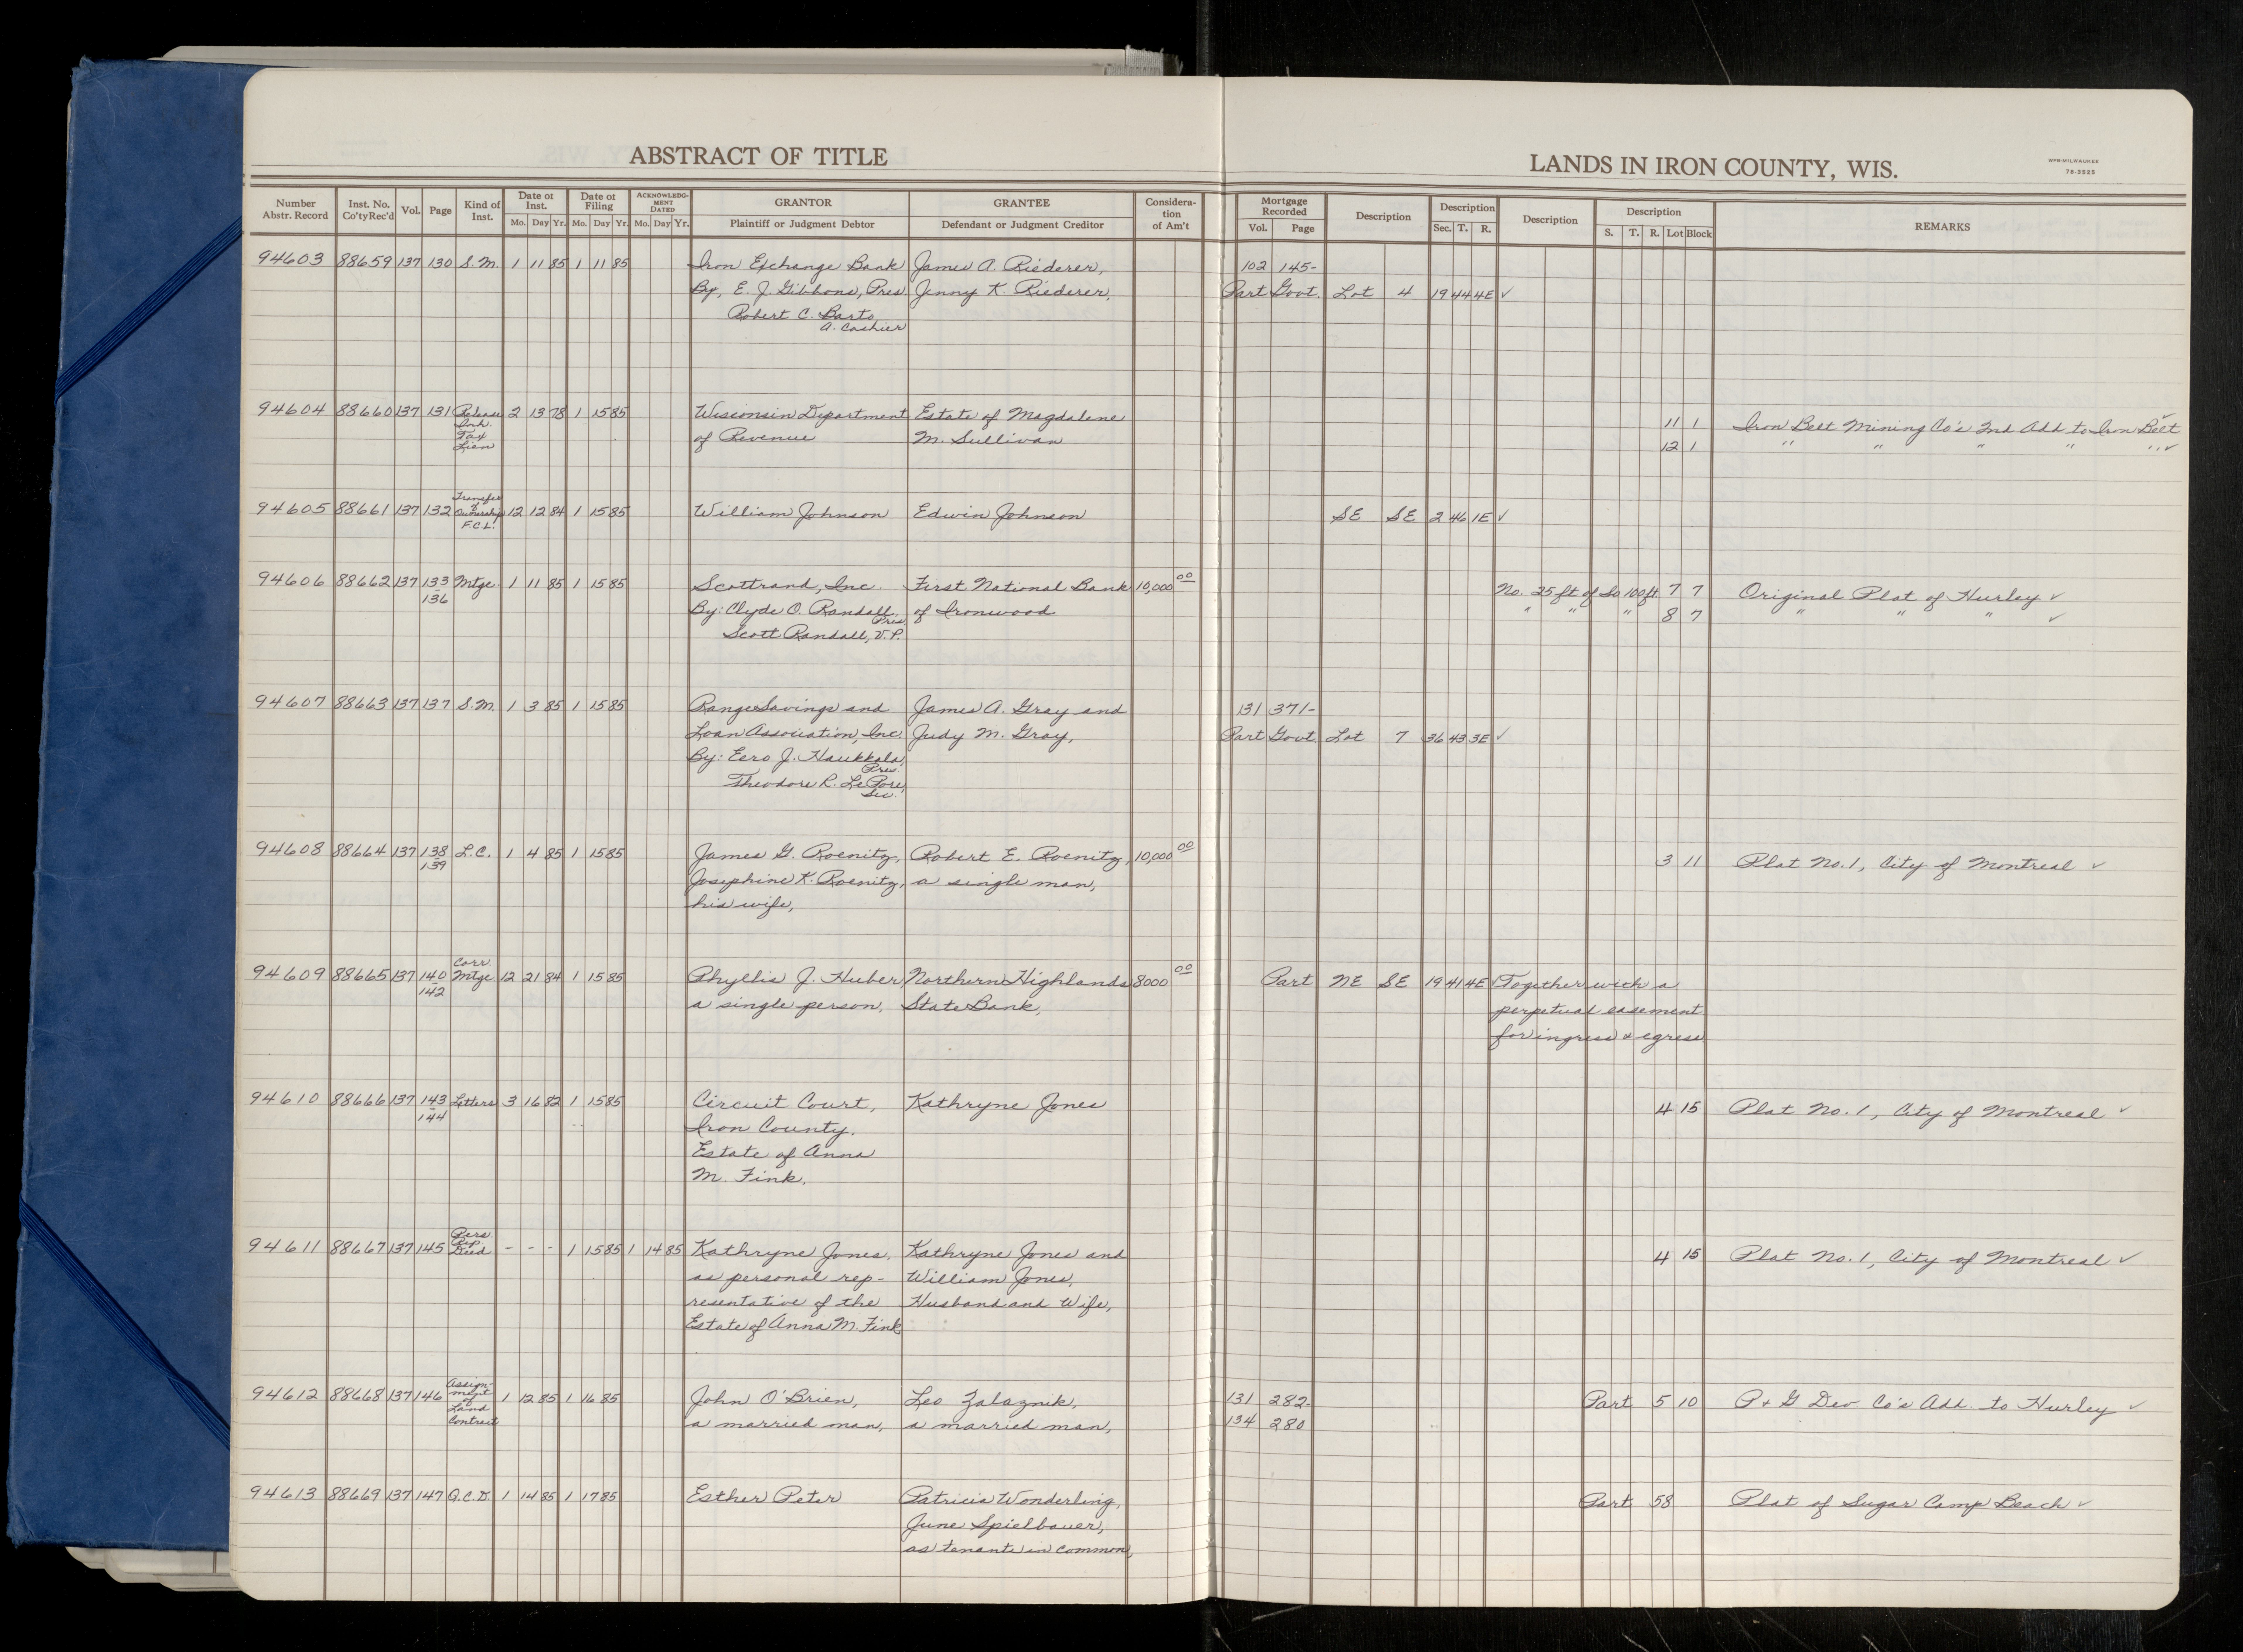 ABSTRACT OF TITLE
LANDS IN IRON COUNTY, WIS.
WPB-MILWAUKEE
78-3525
Number Abstr. Record | Inst. No. Co'ty Rec'd | Vol. | Page | Kind of Inst. | Date of Inst. Mo. Day Yr. | Date of Filing Mo. Day Yr. | ACKNOWLEDGMENT DATED Mo. Day Yr. | GRANTOR Plaintiff or Judgment Debtor | GRANTEE Defendant or Judgment Creditor | Consideration of Am't | Mortgage Recorded Vol. Page | Description | Description Sec. T. R. | Description | Description S. T. R. Lot Block | REMARKS
94603 88659 137 130 S.M. 1 11 85 1 11 85 Iron Exchange Bank James A. Riederer, 102 145-
By, E. J. Gibbons, Pres. Jenny K. Riederer, Part Govt. Lot 4 19 44 4E ✓
Robert C. Barto,
A. Cashier
94604 88660 137 131 Release 2 13 78 1 15 85 Wisconsin Department Estate of Magdalene 11 1 Iron Belt Mining Co's 2nd Add. to Iron Belt ✓
Inh. of Revenue M. Sullivan 12 1 " " " " " ✓
Tax
Lien
Transfer
94605 88661 137 132 of Ownership 12 12 84 1 15 85 William Johnson Edwin Johnson SE SE 2 46 1E ✓
F.C.L.
94606 88662 137 133 Mtge. 1 11 85 1 15 85 Scottrand, Inc. First National Bank 10,000 00 No. 25 ft of So. 100 ft. 7 7 Original Plat of Hurley ✓
136 By: Clyde O. Randall, Pres. of Ironwood " " " 8 7 " " " ✓
Scott Randall, V.P.
94607 88663 137 137 S.M. 1 3 85 1 15 85 Range Savings and James A. Gray and 131 371-
Loan Association, Inc. Judy M. Gray, Part Govt. Lot 7 36 43 3E ✓
By: Eero J. Haukkala,
Pres.
Theodore R. LePore,
Sec.
94608 88664 137 138 L.C. 1 4 85 1 15 85 James G. Roenitz, Robert E. Roenitz, 10,000 00 3 11 Plat No. 1, City of Montreal ✓
139 Josephine K. Roenitz, a single man,
his wife,
Corr.
94609 88665 137 140 Mtge 12 21 84 1 15 85 Phyllis J. Huber, Northern Highlands 8000 00 Part NE SE 19 41 4E ✓ Together with a
142 a single person, State Bank, perpetual easement
for ingress & egress
94610 88666 137 143 Letters 3 16 82 1 15 85 Circuit Court, Kathryne Jones 4 15 Plat No. 1, City of Montreal ✓
144 Iron County.
Estate of Anna
M. Fink,
Pers.
Rep.
94611 88667 137 145 Deed - - - 1 15 85 1 14 85 Kathryne Jones, Kathryne Jones and 4 15 Plat No. 1, City of Montreal ✓
as personal rep- William Jones,
resentative of the Husband and Wife,
Estate of Anna M. Fink
Assign-
94612 88668 137 146 ment 1 12 85 1 16 85 John O'Brien, Leo Zalaznik, 131 282- Part 5 10 P & G Dev Co's Add. to Hurley ✓
of
Land
Contract a married man, a married man, 134 280
94613 88669 137 147 Q.C.D. 1 14 85 1 17 85 Esther Peter Patricia Wonderling, Part 58 Plat of Sugar Camp Beach ✓
June Spielbauer,
as tenants in common,